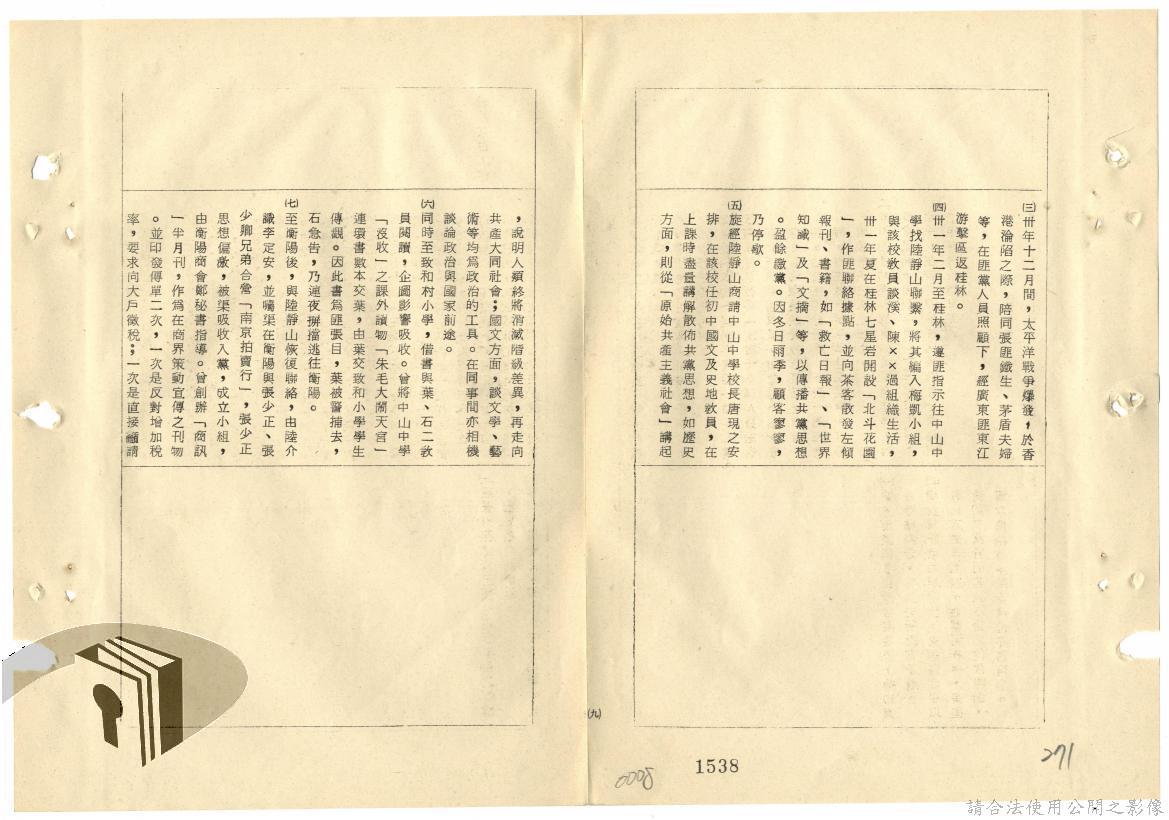 ㈢卅年十二月間，太平洋戰爭爆發，於香
港淪陷之際，陪同張匪鐵生、茅盾夫婦
等，在匪黨人員照顧下，經廣東匪東江
游擊區返桂林。
㈣卅一年二月至桂林，遵匪指示往中山中
學找陸靜山聯繫，將其編入梅凱小組，
與該校教員談渓、陳××過組織生活，
卅一年夏在桂林七星岩開設「北斗花園
」，作匪聯絡據點，並向茶客散發左傾
報刊、書籍，如「救亡日報」、「世界
知識」及「文摘」等，以傳播共黨思想
。盈餘繳黨。因冬日雨季，顧客寥寥，
乃停歇。
㈤旋經陸靜山商請中山中學校長唐現之安
排，在該校任初中國文及史地教員，在
上課時盡量講解散佈共黨思想，如歷史
方面，則從「原始共產主義社會」講起
，說明人類終將消滅階級差異，再走向
共產大同社會；國文方面，談文學、藝
術等均爲政治的工具。在同事間亦相機
談論政治與國家前途。
㈥同時至致和村小學，借書與葉、石二教
員閱讀，企圖影響吸收。曾將中山中學
「沒收」之課外讀物「朱毛大鬧天宮」
連環書數本交葉，由葉交致和小學學生
傳觀。因此書爲匪張目，葉被警捕去，
石急告，乃連夜摒擋逃往衡陽。
㈦至衡陽後，與陸靜山恢復聯絡，由陸介
識李定安，並囑渠在衡陽與張少正、張
少卿兄弟合營「南京拍賣行」，張少正
思想偏激，被渠吸收入黨，成立小組，
由衡陽商會鄭秘書指導。曾創辦「商訊
」半月刊，作爲在商界策動宣傳之刊物
。並印發傳單二次，一次是反對增加稅
率，要求向大戶徵稅；一次是直接籲請
㈨
1538
0008
271
請合法使用公開之影像